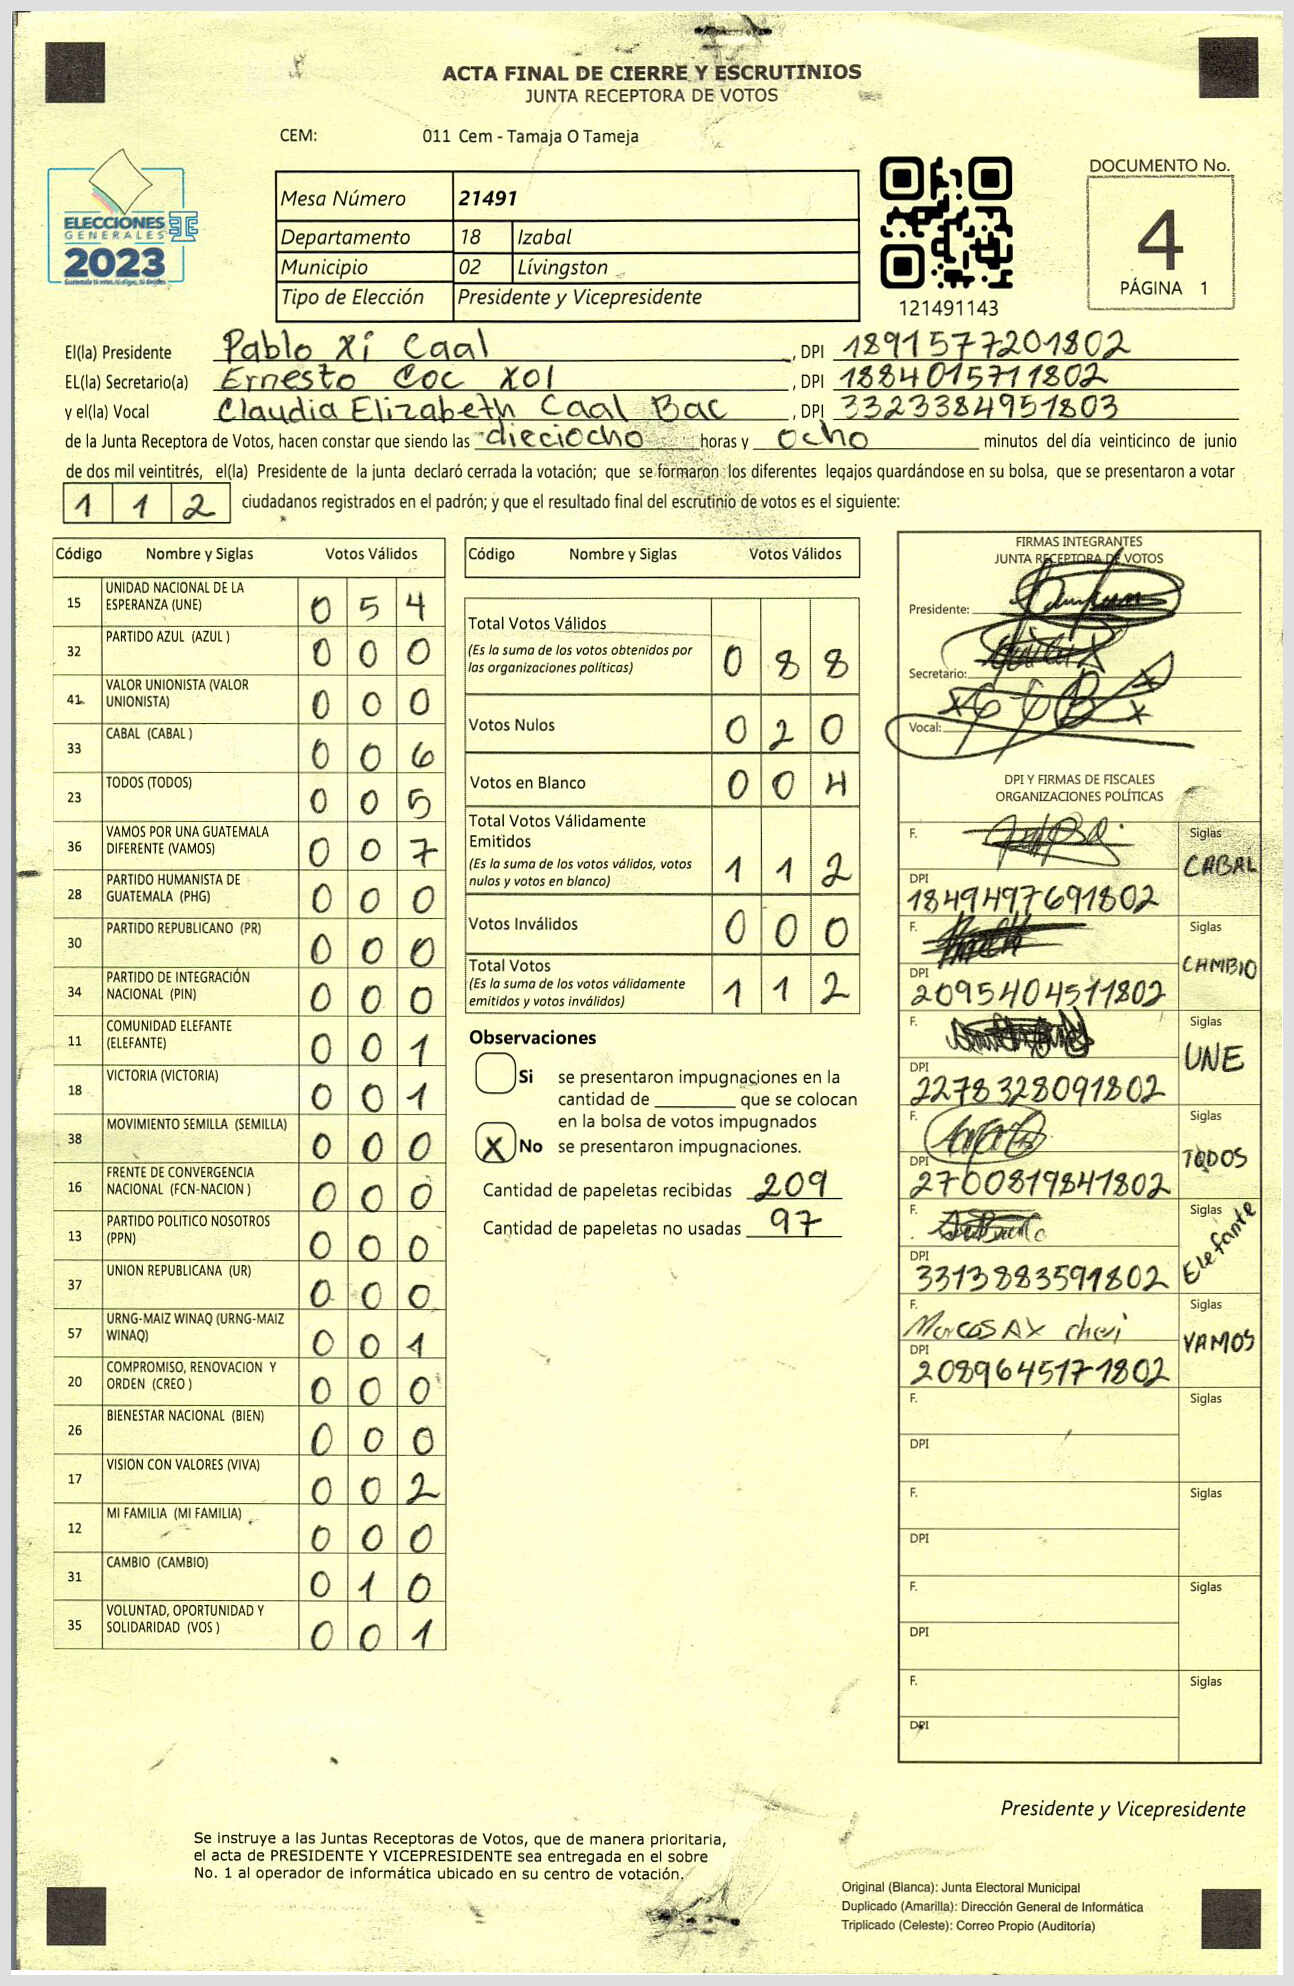 ACTA FINAL DE CIERRE Y ESCRUTINIOS
JUNTA RECEPTORA DE VOTOS
CEM: 011 Cem - Tamaja O Tameja
ELECCIONES
GENERALES
2023
Mesa Número 21491
Departamento 18 Izabal
Municipio 02 Lívingston
Tipo de Elección Presidente y Vicepresidente
121491143
DOCUMENTO No.
4
PÁGINA 1
El(la) Presidente Pablo Xi Caal , DPI 1891577201802
EL(la) Secretario(a) Ernesto Coc Xol , DPI 1884015711802
y el(la) Vocal Claudia Elizabeth Caal Bac , DPI 3323384951803
de la Junta Receptora de Votos, hacen constar que siendo las dieciocho horas y ocho minutos del día veinticinco de junio
de dos mil veintitrés, el(la) Presidente de la junta declaró cerrada la votación; que se formaron los diferentes legajos quardándose en su bolsa, que se presentaron a votar
1 1 2 ciudadanos registrados en el padrón; y que el resultado final del escrutinio de votos es el siguiente:
Código Nombre y Siglas Votos Válidos
15 UNIDAD NACIONAL DE LA ESPERANZA (UNE) 0 5 4
32 PARTIDO AZUL (AZUL ) 0 0 0
41 VALOR UNIONISTA (VALOR UNIONISTA) 0 0 0
33 CABAL (CABAL ) 0 0 6
23 TODOS (TODOS) 0 0 5
36 VAMOS POR UNA GUATEMALA DIFERENTE (VAMOS) 0 0 7
28 PARTIDO HUMANISTA DE GUATEMALA (PHG) 0 0 0
30 PARTIDO REPUBLICANO (PR) 0 0 0
34 PARTIDO DE INTEGRACIÓN NACIONAL (PIN) 0 0 0
11 COMUNIDAD ELEFANTE (ELEFANTE) 0 0 1
18 VICTORIA (VICTORIA) 0 0 1
38 MOVIMIENTO SEMILLA (SEMILLA) 0 0 0
16 FRENTE DE CONVERGENCIA NACIONAL (FCN-NACION ) 0 0 0
13 PARTIDO POLITICO NOSOTROS (PPN) 0 0 0
37 UNION REPUBLICANA (UR) 0 0 0
57 URNG-MAIZ WINAQ (URNG-MAIZ WINAQ) 0 0 1
20 COMPROMISO, RENOVACION Y ORDEN (CREO ) 0 0 0
26 BIENESTAR NACIONAL (BIEN) 0 0 0
17 VISION CON VALORES (VIVA) 0 0 2
12 MI FAMILIA (MI FAMILIA) 0 0 0
31 CAMBIO (CAMBIO) 0 1 0
35 VOLUNTAD, OPORTUNIDAD Y SOLIDARIDAD (VOS ) 0 0 1
Código Nombre y Siglas Votos Válidos
Total Votos Válidos
(Es la suma de los votos obtenidos por
las organizaciones políticas) 0 8 8
Votos Nulos 0 2 0
Votos en Blanco 0 0 4
Total Votos Válidamente
Emitidos
(Es la suma de los votos válidos, votos
nulos y votos en blanco) 1 1 2
Votos Inválidos 0 0 0
Total Votos
(Es la suma de los votos válidamente
emitidos y votos inválidos) 1 1 2
Observaciones
Si se presentaron impugnaciones en la
cantidad de ________ que se colocan
en la bolsa de votos impugnados
X No se presentaron impugnaciones.
Cantidad de papeletas recibidas 209
Cantidad de papeletas no usadas 97
FIRMAS INTEGRANTES
JUNTA RECEPTORA DE VOTOS
Presidente:
Secretario:
Vocal:
DPI Y FIRMAS DE FISCALES
ORGANIZACIONES POLÍTICAS
F. Siglas
CABAL
DPI
1849497691802
F. Siglas
CAMBIO
DPI
2095404511802
F. Siglas
UNE
DPI
2278328091802
F. Siglas
TODOS
DPI
2700819841802
F. Siglas
Elefante
DPI
3313883591802
F. Siglas
Marcos Ax
VAMOS
DPI
2089645171802
F. Siglas
DPI
F. Siglas
DPI
F. Siglas
DPI
F. Siglas
DPI
Presidente y Vicepresidente
Se instruye a las Juntas Receptoras de Votos, que de manera prioritaria,
el acta de PRESIDENTE Y VICEPRESIDENTE sea entregada en el sobre
No. 1 al operador de informática ubicado en su centro de votación.
Original (Blanca): Junta Electoral Municipal
Duplicado (Amarilla): Dirección General de Informática
Triplicado (Celeste): Correo Propio (Auditoría)